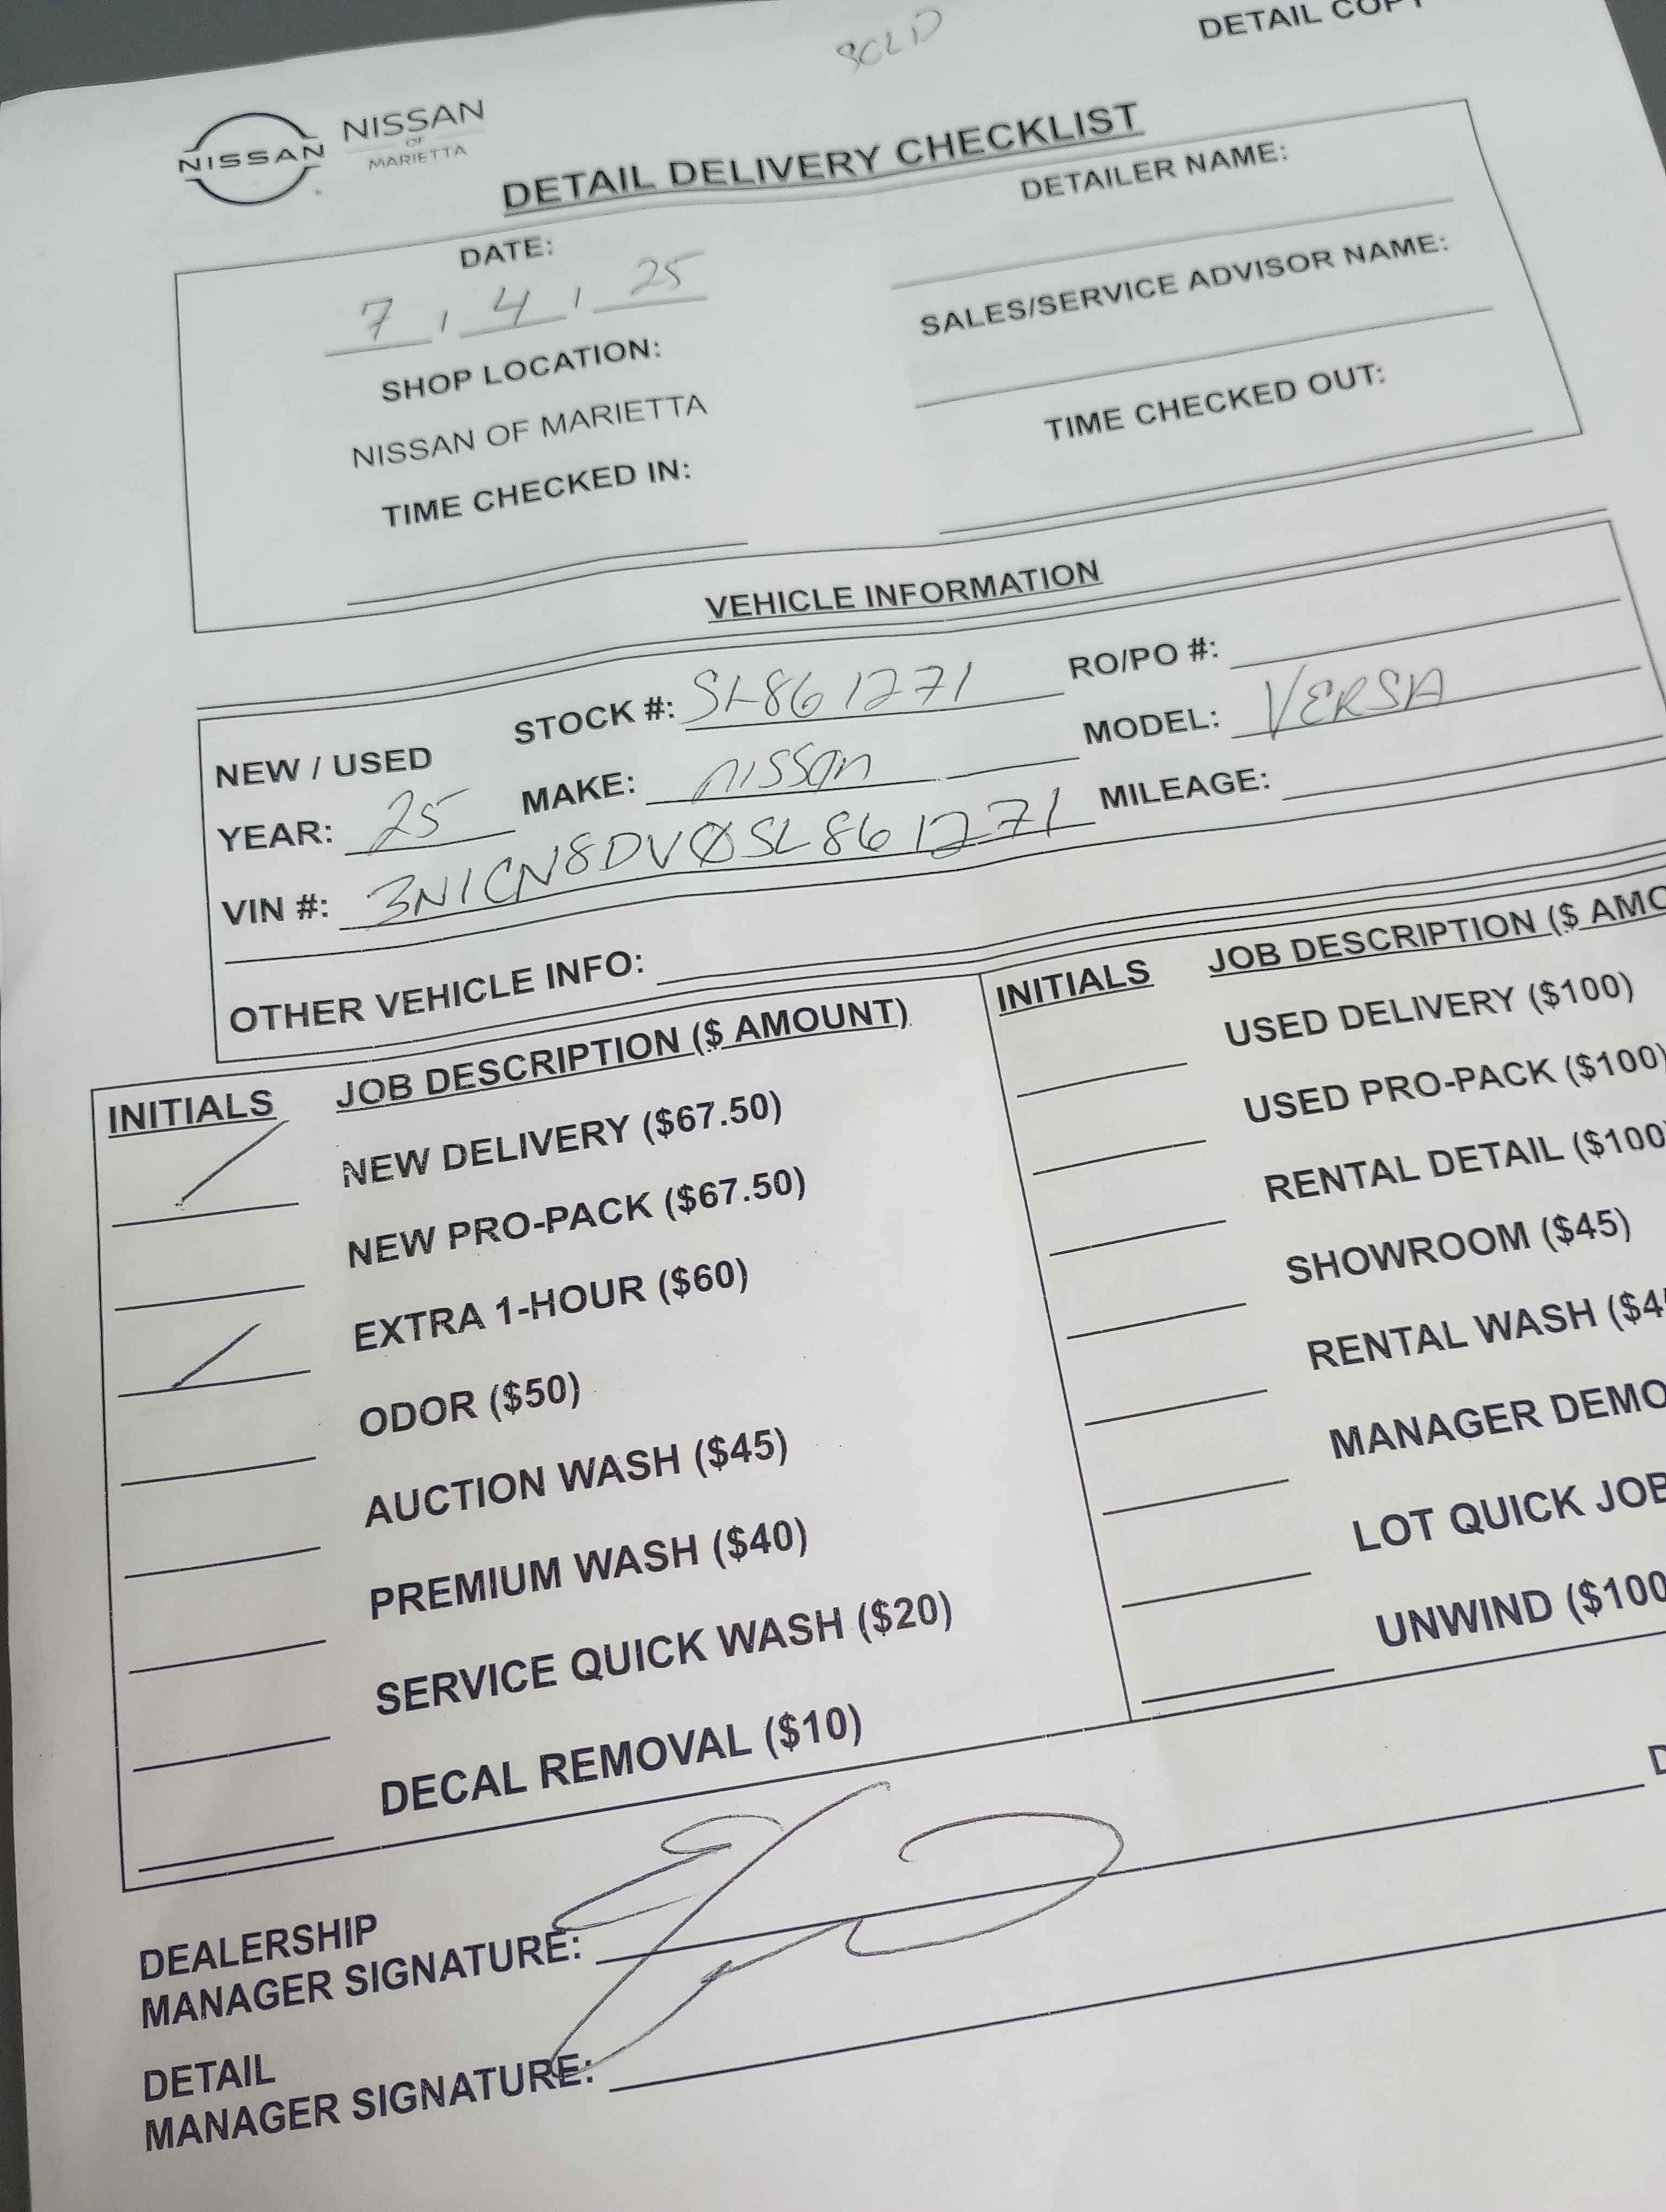 SOLD
DETAIL COPY
NISSAN
NISSAN
OF
MARIETTA
DETAIL DELIVERY CHECKLIST
DATE:
7 / 4 / 25
SHOP LOCATION:
NISSAN OF MARIETTA
TIME CHECKED IN:
DETAILER NAME:
SALES/SERVICE ADVISOR NAME:
TIME CHECKED OUT:
VEHICLE INFORMATION
NEW / USED STOCK #: SL861271 RO/PO #:
YEAR: 25 MAKE: nissan MODEL: VERSA
VIN #: 3N1CN8DV0SL861271 MILEAGE:
OTHER VEHICLE INFO:
INITIALS JOB DESCRIPTION ($ AMOUNT)
NEW DELIVERY ($67.50)
NEW PRO-PACK ($67.50)
EXTRA 1-HOUR ($60)
ODOR ($50)
AUCTION WASH ($45)
PREMIUM WASH ($40)
SERVICE QUICK WASH ($20)
DECAL REMOVAL ($10)
INITIALS JOB DESCRIPTION ($ AMO
USED DELIVERY ($100)
USED PRO-PACK ($100)
RENTAL DETAIL ($100
SHOWROOM ($45)
RENTAL WASH ($4
MANAGER DEMO
LOT QUICK JOB
UNWIND ($100
DEALERSHIP
MANAGER SIGNATURE:
DETAIL
MANAGER SIGNATURE: